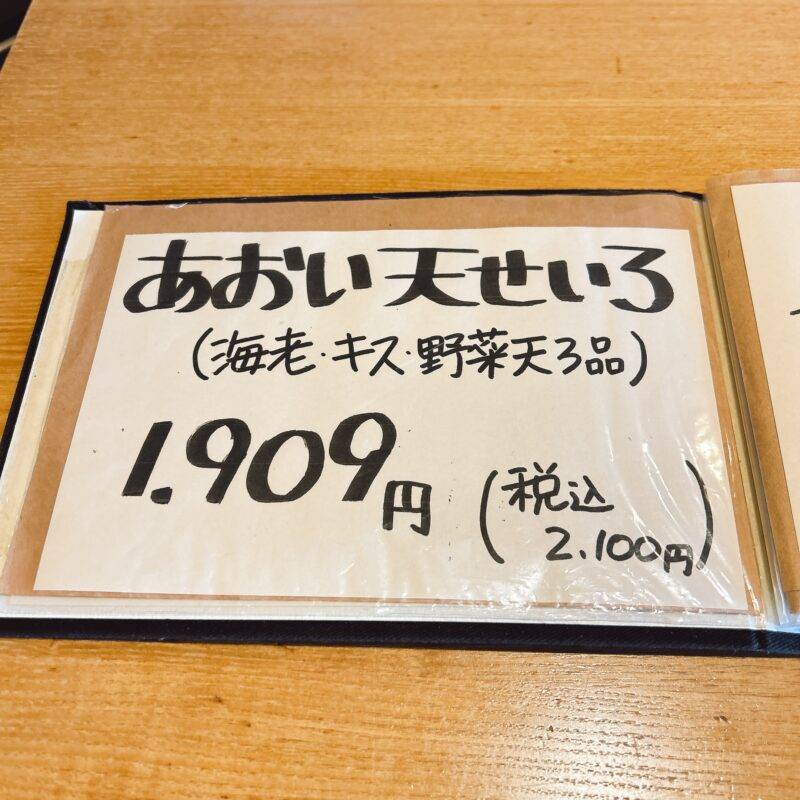 あおい天せいろ
(海老・キス・野菜天3品)
1.909円
(税込
2.100円)